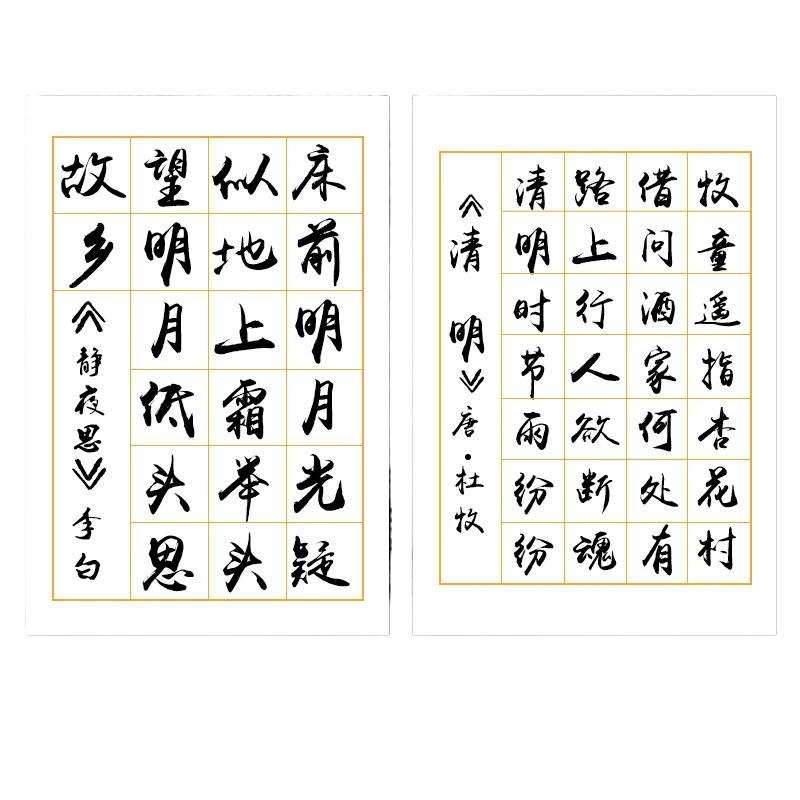 床前明月光疑
似地上霜举头
望明月低头思
故乡
《静夜思》李白
《清明》唐·杜牧
清明时节雨纷纷
路上行人欲断魂
借问酒家何处有
牧童遥指杏花村